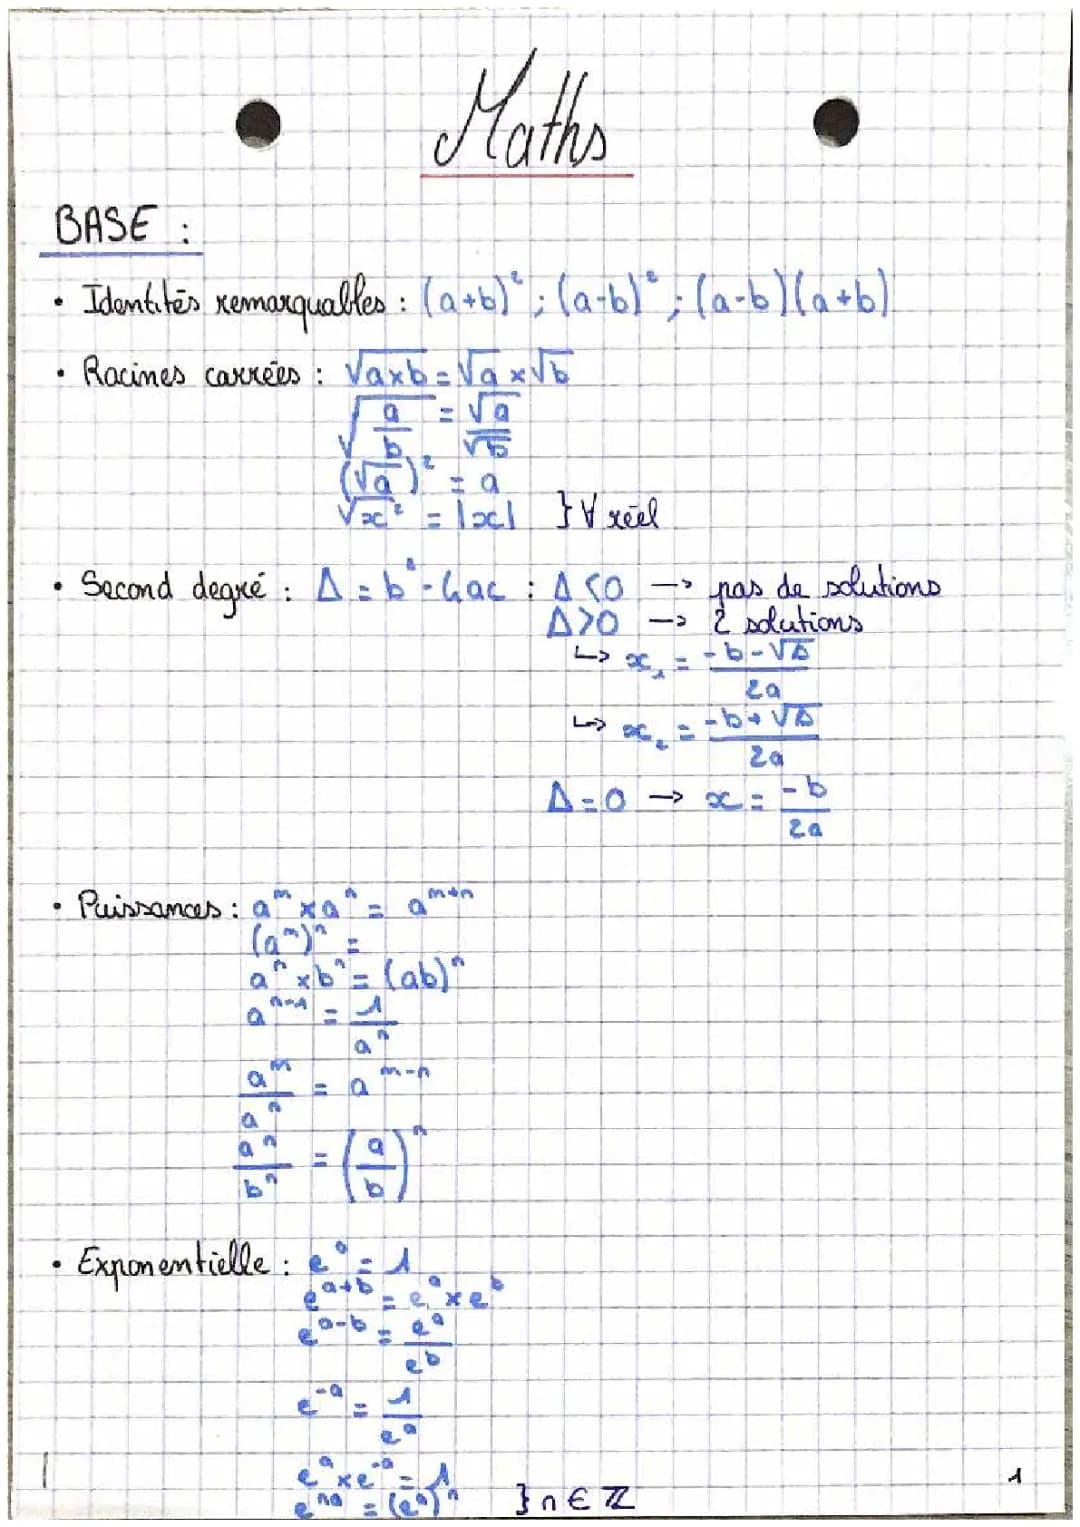 Maths
BASE :
• Identités remarquables : (a+b)² ; (a-b)² ; (a-b)(a+b)
• Racines carrées : √(a×b) = √a × √b
√(a/b) = √a/√b
(√a)² = a
√(x²) = |x| } ∀ réel
• Second degré : Δ = b² - 4ac : Δ < 0 → pas de solutions
Δ > 0 → 2 solutions
↳ x₁ = (-b-√Δ)/2a
↳ x₂ = (-b+√Δ)/2a
Δ = 0 → x = -b/2a
• Puissances : aᵐ × aⁿ = aᵐ⁺ⁿ
(aᵐ)ⁿ =
aⁿ × bⁿ = (ab)ⁿ
aⁿ⁻¹ = 1/aⁿ
aᵐ/aⁿ = aᵐ⁻ⁿ
aⁿ/bⁿ = (a/b)ⁿ
• Exponentielle : e⁰ = 1
eᵃ⁺ᵇ = eᵃ × eᵇ
eᵃ⁻ᵇ = eᵃ/eᵇ
e⁻ᵃ = 1/eᵃ
eᵃ × e⁻ᵃ = 1
eⁿᵃ = (eᵃ)ⁿ } n ∈ ℤ
1